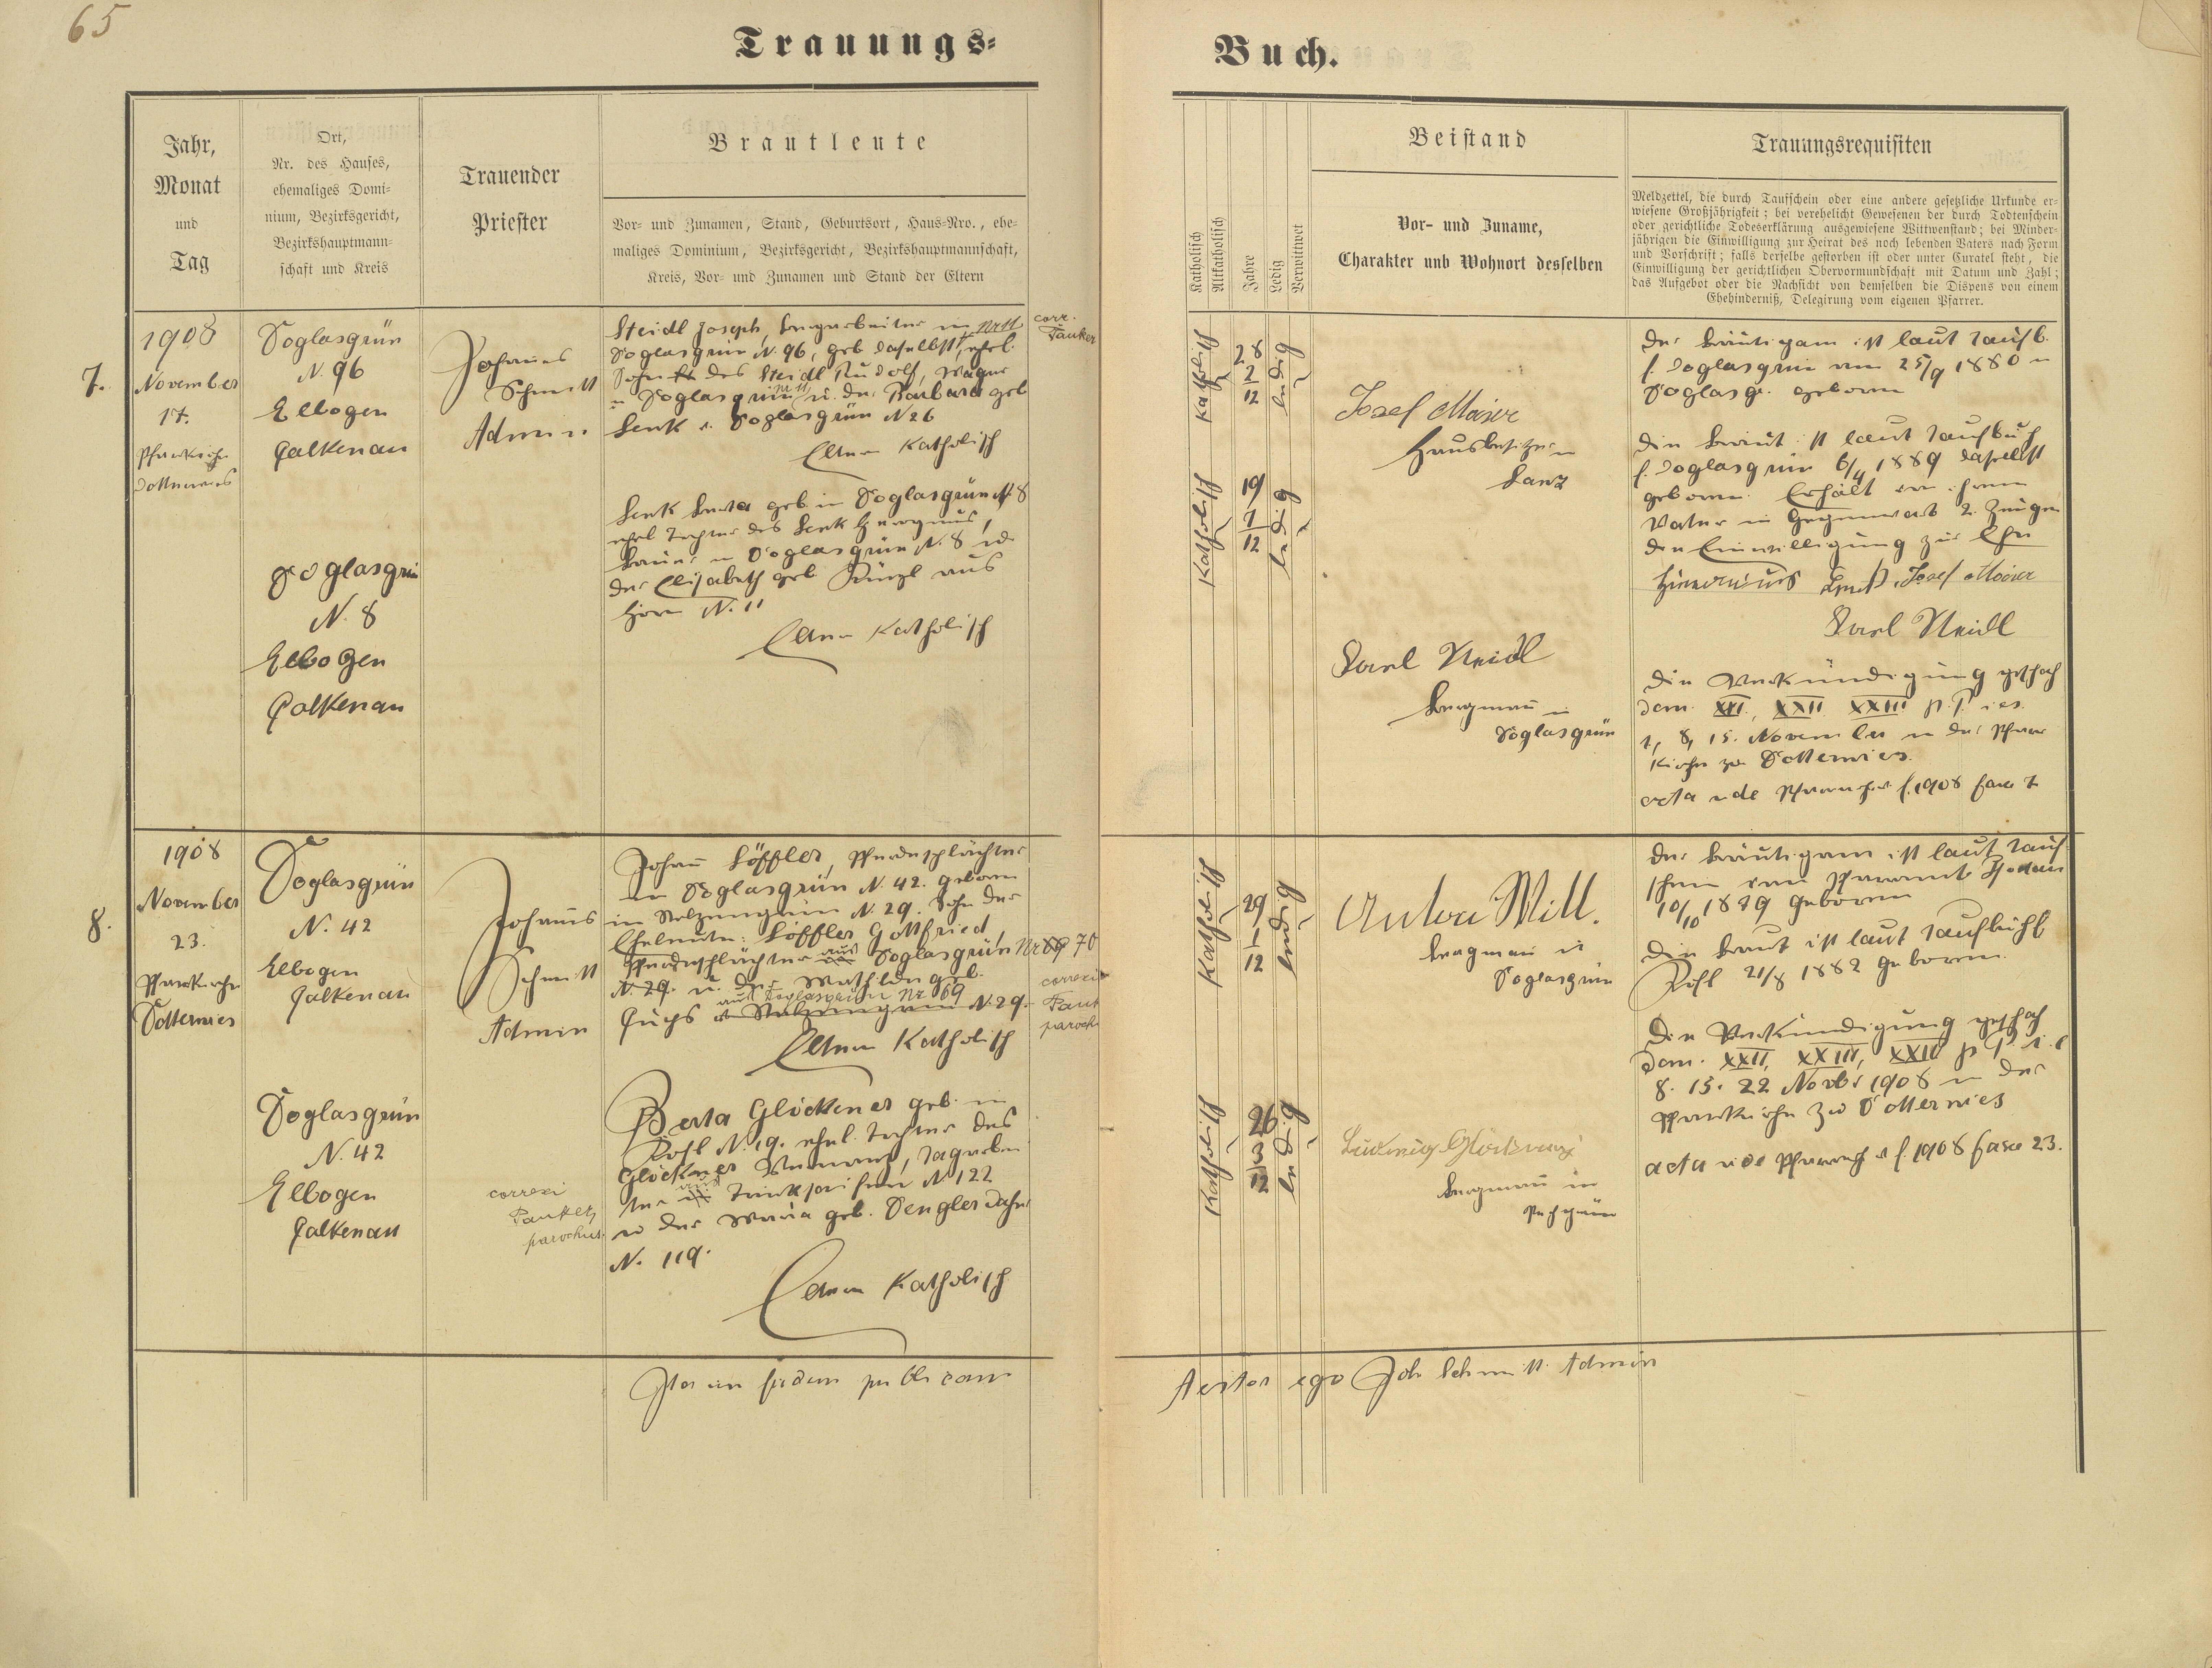 65
Trauungs-
Buch.
Jahr,
Monat
und
Tag
Ort,
Nr. des Hauses,
ehemaliges Domi-
nium, Bezirksgericht,
Bezirkshauptmann-
schaft und Kreis
Trauender
Priester
Brautleute
Vor- und Zunamen, Stand, Geburtsort, Haus-Nro., ehe-
maliges Dominium, Bezirksgericht, Bezirkshauptmannschaft,
Kreis, Vor- und Zunamen und Stand der Eltern
Katholisch
Altkatholisch
Jahre
Ledig
Verwittwet
Beistand
Vor- und Zuname,
Charakter und Wohnort desselben
Trauungsrequisiten
Meldzettel, die durch Taufschein oder eine andere gesetzliche Urkunde er-
wiesene Großjährigkeit; bei verehelicht Gewesenen der durch Todtenschein
oder gerichtliche Todeserklärung ausgewiesene Wittwenstand; bei Minder-
jährigen die Einwilligung zur Heirat des noch lebenden Vaters nach Form
und Vorschrift; falls derselbe gestorben ist oder unter Curatel steht, die
Einwilligung der gerichtlichen Obervormundschaft mit Datum und Zahl;
das Aufgebot oder die Nachsicht von demselben die Dispens von einem
Ehehinderniß, Delegirung vom eigenen Pfarrer.
7.
1908
November
17.
Pfarrkirche
Dotterwies
Doglasgrün
N. 96
Elbogen
Falkenau
Doglasgrün
N. 8
Elbogen
Falkenau
Johannes
Schmitt
Admin
Steidl Joseph, Bergarbeiter in Nr 11
Doglasgrün N. 96, geb daselbst, ehel.
Sohn des Steidl Rudolf,
in Doglasgrün Nr 11 u. der Barbara geb
Lenk a. Doglasgrün N 26
Eltern Katholisch
corr.
Lenk Berta geb in Doglasgrün N. 8
ehel Tochter des Lenk
Bauer in Doglasgrün N. 8 u.
der Elisabeth geb. aus
Horn N. 11
Eltern Katholisch
Katholisch
28
2
12
ledig
Katholisch
19
7
12
ledig
Josef Maier
Hausbesitzer in
Lanz
Karl Steidl
Bergmann in
Doglasgrün
Der Bräutigam ist laut Taufb.
f. Doglasgrün am 25/9 1880 in
Doglasgr. geboren
Die Braut ist laut Taufbuch
f. Doglasgrün 6/4 1889 daselbst
geboren. Erhält von ihrem
Vater in Gegenwart 2. Zeugen
die Einwilligung zur Ehe
Lenk, Josef Maier
Karl Steidl
Die Verkündigung geschah
dom. XXI, XXII XXIII p. P. i. es.
1, 8, 15. November in der Pfarr
kirche zu Dotterwies.
acta vide f. 1908 fasc 7
8.
1908
November
23.
Pfarrkirche
Dotterwies
Doglasgrün
N. 42
Elbogen
Falkenau
Doglasgrün
N. 42
Elbogen
Falkenau
Johannes
Schmitt
Admin
correxi
parochus.
Johann Löffler, Pferdeschlächter
in Doglasgrün N. 42. geboren
in Stelzengrün N. 29. Sohn der
Eheleute: Löffler Gottfried,
Pferdeschlächter aus Doglasgrün Nr 69 70
N. 29. u. der Mathilde geb.
aus Doglasgrün Nr 69
Fuchs N. 29.
Eltern Katholisch
correxi
Berta Glöckner geb. in
N. 19. ehel. Tochter des
Glöckner Hermann, Tagarbei
ter aus Trinkseifen N 122
u der Maria geb. Dengler
N. 119.
Eltern Katholisch
Katholisch
29
1
12
ledig
Katholisch
26
3
12
ledig
Anton Will.
Bergmann in
Doglasgrün
Ludwig Glöckner
Bergmann in
Der Bräutigam ist laut Tauf
schein vom Pfarramte Chodau
10/10 1879 geboren
Die Braut ist laut Taufbuch
21/8 1882 geboren.
Die Verkündigung geschah
dom. XXII, XXIII, XXIV p P. i. e
8. 15. 22 Novbr 1908 in der
Pfarrkirche zu Dotterwies
acta vide f. 1908 fasc 23.
Ita in fidem publicam
Testor ego Joh Schmitt Admin